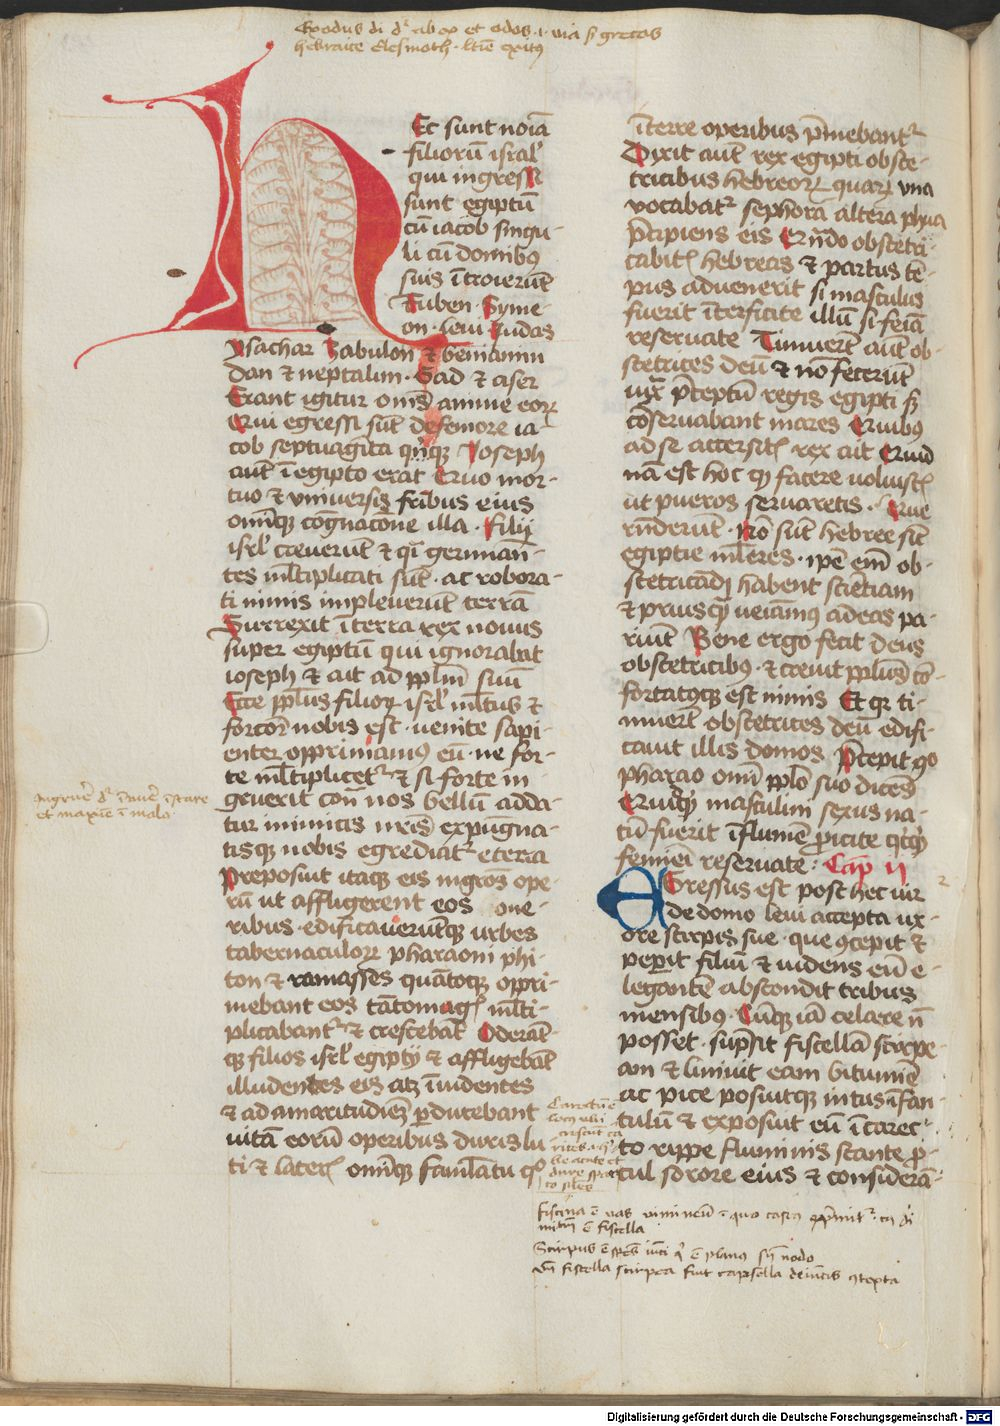 Exodus di dr ab ex et odos .i. via sz grecos
hebraice elesmoth . ltie exitus
HEc sunt noīa
filiorū isral'
qui ingressi
sunt egiptū
cū iacob singu-
li cū domibus
suis ītroierūt
Ruben Syme-
on . leui Iudas
ysachar zabulon et beniamin
dan et neptalim . Gad et aser
Erant igitur om̄s anime eorꝝ
Qui egressi sūt de femore ia-
cob septuagīta qnqꝫ Ioseph
aūt ī egipto erat Quo mor-
tuo et vniversis fr̄ibus eius
om̄iqꝫ cognacōne illa . Filij
isrl' creuerūt et q̄i germinā-
tes ml̄tiplicati sūt . ac robora-
ti nimis impleuerūt terrā
Surrexit ī terra rex nouus
super egiptū qui ignorabat
ioseph et ait ad ppl̄m suū
Ecce ppl̄us filiorꝝ isrl' ml̄tus et
forcior nobis est . uenite sapi-
enter opprimamus eū . ne for-
te ml̄tiplicetr et si forte in-
gruerit con̄ nos bellū adda-
tur inimicis nr̄is expugna-
tisqꝫ nobis egrediatr e terra
Preposuit itaqꝫ eis mgr̄os ope-
rū ut affligerent eos one-
ribus . edificauerūtqꝫ urbes
tabernaculorꝝ pharaoni phi-
ton et ramasses quātoqꝫ oppri-
mebant eos tātomagꝭ ml̄ti-
plicabantr et crescebāt Oderāt-
qꝫ filios isrl' egiptij et affligebāt
illudentes eis atqꝫ īuidentes
et ad amaritudinē perducebant
uitā eorū operibus duris lu-
ti et lateris om̄iqꝫ famulatu qo
Ingruer̄ dr īruer̄ īstare
et maxime ī malo
ī terre operibus pmebantr
Dixit aūt rex egipti obste-
tricibus hebreorꝝ quarꝝ vna
vocabatr sephora altera phua
Precipiens eis Quando obstetri-
cabitis hebreas et partus tē-
pus aduenerit si masculus
fuerit īterficite illū si feīa
reseruate Timuerūt aūt ob-
stetrices deū et non fecerūt
iuxta preceptū regis egipti sz
cōseruabant mares Quibus
ad se accersitis rex ait Quid
nā est hoc qꝫ facere uoluistis
ut pueros seruaretis . Que
rn̄derūt . Nō sūt hebree sicut
egiptie ml̄ieres . ipse enim ob-
stetricādi habent scientiam
et priusqꝫ ueiamus ad eas pa-
riūt Bene ergo fecit deus
obstetricibus . et creuit pplūs cō-
fortatusqꝫ est nimis Et qꝛ ti-
muerūt obstetrices deū edifi-
cauit illis domos Precepit go
pharao om̄i pplo suo dicēs
Quicqꝫ masculini sexus na-
tū fuerit ī flumē proicite qcqꝫ
feminei reseruate . Cap ij
EGressus est post hec uir
de domo leui accepta ux-
ore stirpis sue . que ꝯcepit et
peperit filiū et uidens eū e-
legantē abscondit tribus
mensibus . Cūqꝫ iā celare n̄
posset . supsit fiscellā scirpe-
am et liniuit eam bitumie
ac pice posuitqꝫ intus īfan-
tulū et exposuit eū ī carec-
to rippe fluminis stante pro-
cul sorore eius et considerā-
Carectū ē
locus ubi
crescūt ca
fiscina ē vas vimineū ī quo caseus exprimitr . cuius di
mitiū ē fiscella
Scirpus ē spēs iūci q ē planus sn̄ nodo
vn̄ fiscella scirpea fiut capsella de iūcis ꝯtexta
Digitalisierung gefördert durch die Deutsche Forschungsgemeinschaft - DFG